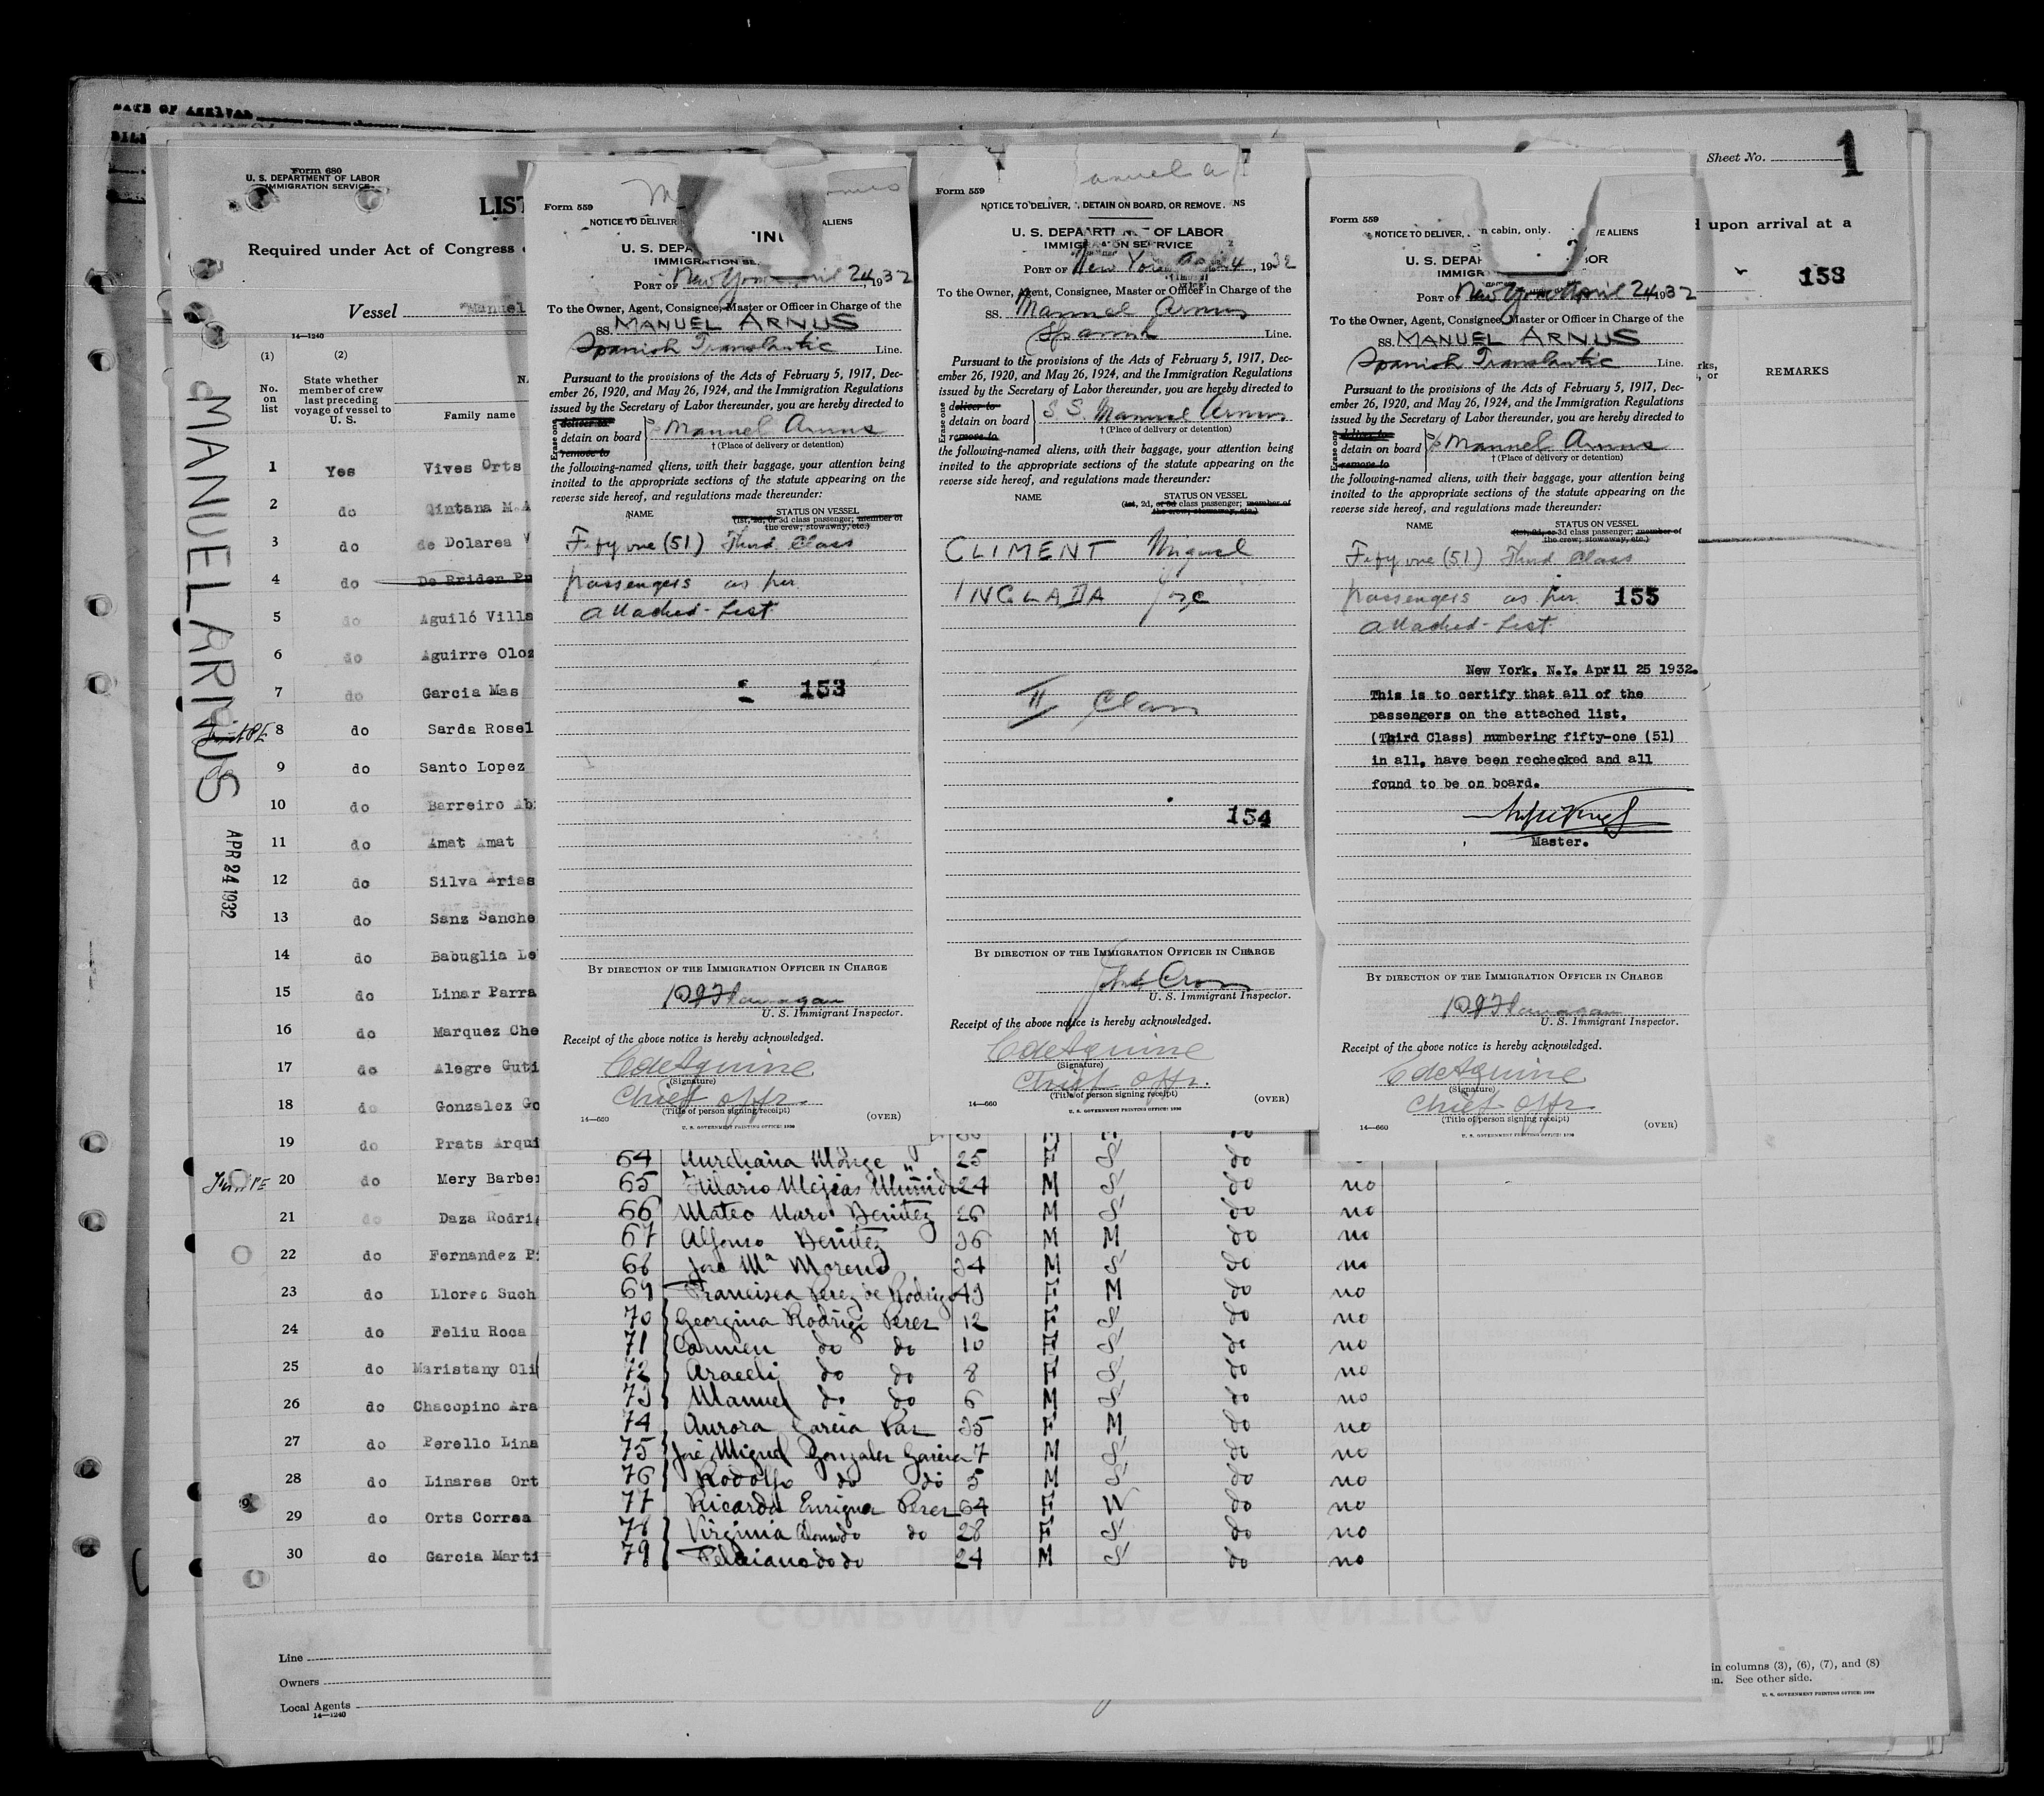 DATE OF ARRIVAL
Form 680
U. S. DEPARTMENT OF LABOR
IMMIGRATION SERVICE
LIST
Required under Act of Congress
Vessel "Manuel
14—1240
(1)
No. on list
(2)
State whether member of crew last preceding voyage of vessel to U. S.
Family name
MANUEL ARNUS
APR 24 1932
1 Yes Vives Orts
2 do Qintana M.A
3 do de Dolarea V
4 do De Rrider
5 do Aguiló Villa
6 do Aguirre Oloz
7 do Garcia Mas
8 do Sarda Rosel
9 do Santo Lopez
10 do Barreiro Ab
11 do Amat Amat
12 do Silva Arias
13 do Sanz Sanche
14 do Babuglia Le
15 do Linar Parra
16 do Marquez Che
17 do Alegre Guti
18 do Gonzalez Go
19 do Prats Arqui
20 do Mery Barber
21 do Daza Rodri
22 do Fernandez P
23 do Llorec Such
24 do Feliu Roca
25 do Maristany Oli
26 do Chacopino Ara
27 do Perello Lina
28 do Linares Ort
29 do Orts Correa
30 do Garcia Marti
Line
Owners
Local Agents
14—1240
Form 559
NOTICE TO DELIVER ALIENS
U. S. DEPA
IMMIGRATION SE
PORT OF New York April 24, 1932
To the Owner, Agent, Consignee, Master or Officer in Charge of the
SS. MANUEL ARNUS
Spanish Transatlantic Line.
Pursuant to the provisions of the Acts of February 5, 1917, Dec-
ember 26, 1920, and May 26, 1924, and the Immigration Regulations
issued by the Secretary of Labor thereunder, you are hereby directed to
Erase one
deliver to
detain on board
remove to
Manuel Arnus
† (Place of delivery or detention)
the following-named aliens, with their baggage, your attention being
invited to the appropriate sections of the statute appearing on the
reverse side hereof, and regulations made thereunder:
NAME
STATUS ON VESSEL
(1st, 2d, or 3d class passenger; member of
the crew; stowaway, etc.)
Fifty one (51) Third Class
passengers as per
attached-List
153
BY DIRECTION OF THE IMMIGRATION OFFICER IN CHARGE
Flanagan
U. S. Immigrant Inspector.
Receipt of the above notice is hereby acknowledged.
(Signature)
Chief Offr.
(Title of person signing receipt)
14—660
(OVER)
U. S. GOVERNMENT PRINTING OFFICE: 1930
Form 559
NOTICE TO DELIVER, DETAIN ON BOARD, OR REMOVE NS
U. S. DEPARTMENT OF LABOR
IMMIGRATION SERVICE
PORT OF New York 24, 1932
To the Owner, Agent, Consignee, Master or Officer in Charge of the
SS. Manuel Arnus
Spanish Line.
Pursuant to the provisions of the Acts of February 5, 1917, Dec-
ember 26, 1920, and May 26, 1924, and the Immigration Regulations
issued by the Secretary of Labor thereunder, you are hereby directed to
Erase one
deliver to
detain on board
remove to
S.S. Manuel Arnus
† (Place of delivery or detention)
the following-named aliens, with their baggage, your attention being
invited to the appropriate sections of the statute appearing on the
reverse side hereof, and regulations made thereunder:
NAME
STATUS ON VESSEL
(1st, 2d, or 3d class passenger; member of
the crew; stowaway, etc.)
CLIMENT Miguel
INGLADA Jose
II Class
154
BY DIRECTION OF THE IMMIGRATION OFFICER IN CHARGE
U. S. Immigrant Inspector.
Receipt of the above notice is hereby acknowledged.
(Signature)
Chief Offr.
(Title of person signing receipt)
14—660
(OVER)
U. S. GOVERNMENT PRINTING OFFICE: 1930
Form 559
NOTICE TO DELIVER, n cabin, only. VE ALIENS
U. S. DEPA BOR
IMMIGR
PORT OF New York April 24, 1932
To the Owner, Agent, Consignee, Master or Officer in Charge of the
SS. MANUEL ARNUS
Spanish Transatlantic Line.
Pursuant to the provisions of the Acts of February 5, 1917, Dec-
ember 26, 1920, and May 26, 1924, and the Immigration Regulations
issued by the Secretary of Labor thereunder, you are hereby directed to
Erase one
deliver to
detain on board
remove to
Manuel Arnus
† (Place of delivery or detention)
the following-named aliens, with their baggage, your attention being
invited to the appropriate sections of the statute appearing on the
reverse side hereof, and regulations made thereunder:
NAME
STATUS ON VESSEL
(1st, 2d, or 3d class passenger; member of
the crew; stowaway, etc.)
Fifty one (51) Third Class
passengers as per 155
attached-List
New York, N.Y. April 25 1932.
This is to certify that all of the
passengers on the attached list,
(Third Class) numbering fifty-one (51)
in all, have been rechecked and all
found to be on board.
Master.
BY DIRECTION OF THE IMMIGRATION OFFICER IN CHARGE
Flanagan
U. S. Immigrant Inspector.
Receipt of the above notice is hereby acknowledged.
(Signature)
Chief Offr.
(Title of person signing receipt)
14—660
(OVER)
U. S. GOVERNMENT PRINTING OFFICE: 1930
Sheet No. 1
d upon arrival at a
153
rks,
, or
REMARKS
64 Aureliana Monge 25 F S do
65 Hilario Mejeas 24 M S do no
66 Mateo Haro Benitez 26 M S do no
67 Alfonso Benitez 36 M M do no
68 José Mª Moreno 34 M S do no
69 Francisca Perez de Rodrigo 43 F M do no
70 Georgina Rodrigo Perez 12 F S do no
71 Carmen do do 10 F S do no
72 Araceli do do 8 F S do no
73 Manuel do do 6 M S do no
74 Aurora Garcia Paz 35 F M do no
75 José Miguel Gonzalez Garcia 7 M S do no
76 Rodolfo do do 5 M S do no
77 Ricarda Enrigua Perez 64 F W do no
78 Virginia do 28 F S do no
79 Feliciano do do 24 M S do no
COMPAÑIA TRASATLANTICA
in columns (3), (6), (7), and (8)
n. See other side.
U. S. GOVERNMENT PRINTING OFFICE: 1930